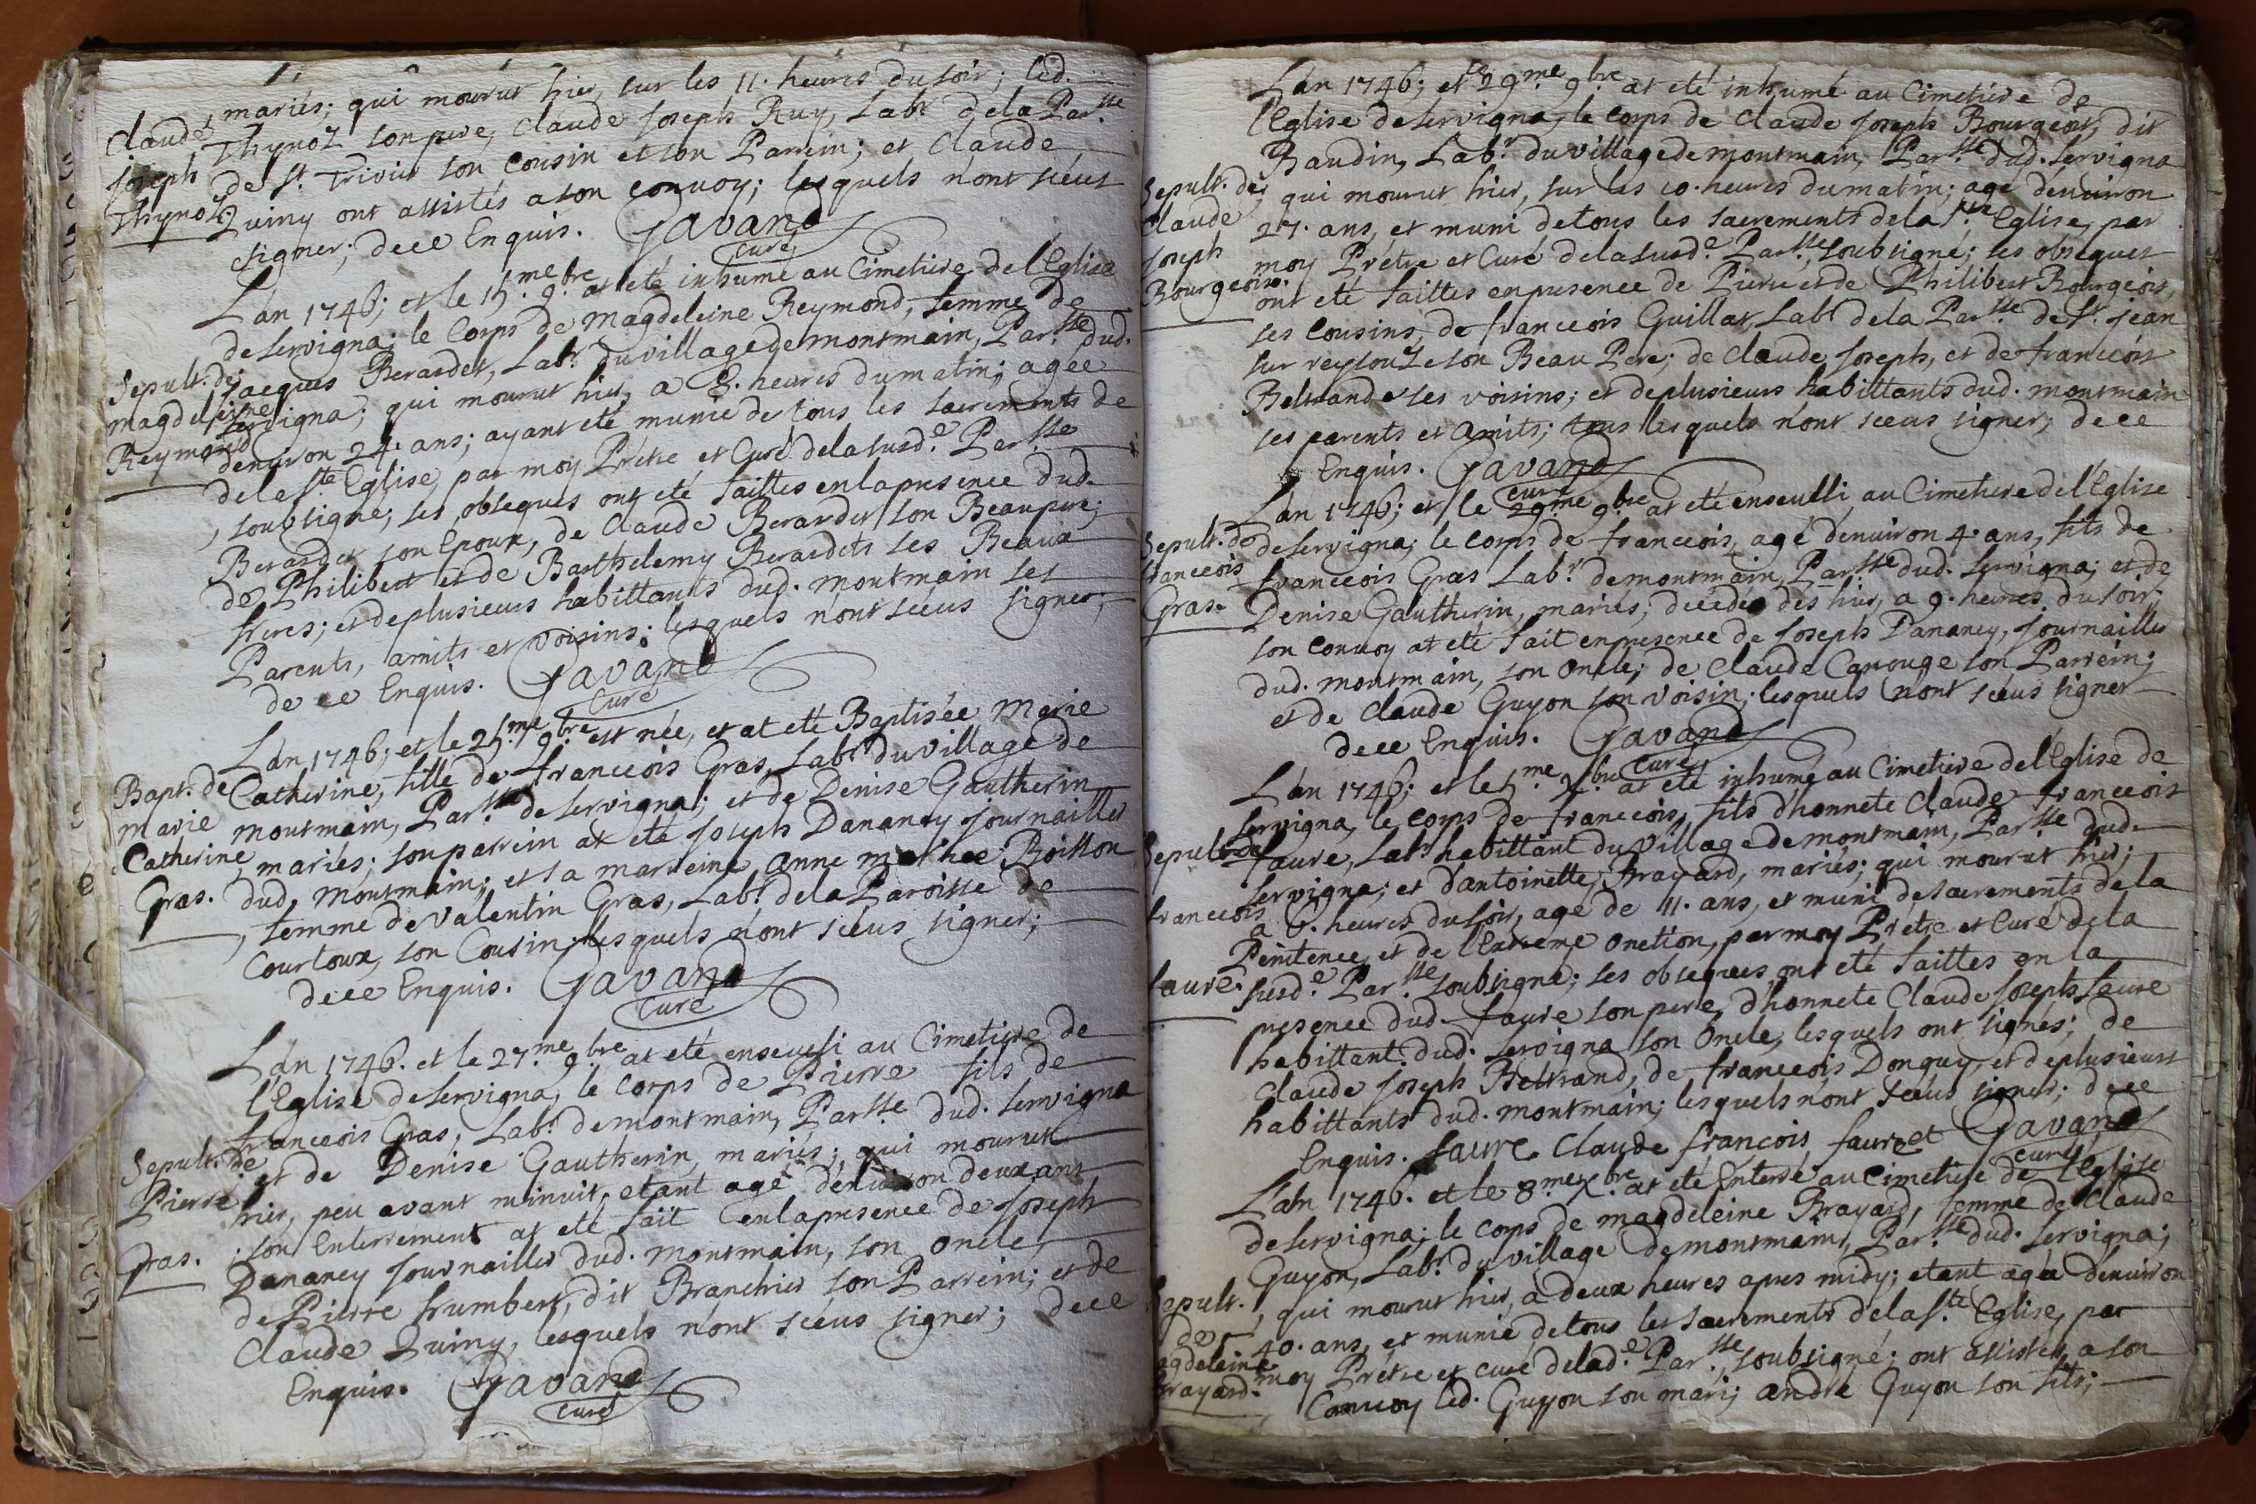 mariés; qui mourut hier, sur les 11. heures du soir; led.
Claude Joseph Thynoz
Thynoz son pere, Claude Joseph Ruy, Labr. de la Parsse
de St. Trivier son Cousin et son Parrein; et Claude
Quiny ont assistés a son convoy; lesquels n'ont sceus
signer; de ce Enquis. Gavand
Curé
L'an 1746; et le 15.me 9.bre at eté inhumé au Cimetiere de l'Eglise
de Servigna; le Corps de Magdeleine Reymond, femme de
Sepult. de Magdeleine Reymond
Jacques Berardet, Labr. du village de montmain, Parsse dud.
Servigna; qui mourut hier, a 8. heures du matin; agée
denviron 24. ans; ayant eté munie de tous les sacrements de
de la Ste Eglise, par moy Prétre et Curé de la susd.e Parsse
soubsigné; ses obseques ont eté faittes en la presence dud.
Berardet son Epoux, de Claude Berardet son Beaupere;
de Philibert et de Barthelemy Berardets ses Beaux
freres; et de plusieurs habittants dud. montmain ses
Parents, amits et voisins; lesquels n'ont sceus signer;
de ce Enquis. Gavand
Curé
L'an 1746; et le 25.me 9.bre est née, et at eté Baptisée Marie
Bapt. de Marie Catherine Gras.
Catherine, fille de franceois Gras, Labr. du village de
montmain, Parsse de Servigna; et de Denise Gautherin
mariés; son parrein at eté Joseph Dananey journaillier
dud. montmain; et sa marreine anne mathée Boisson
femme de Valentin Gras, Labr. de la Paroisse de
Courtoux, son Cousin; lesquels n'ont sceus signer;
de ce Enquis. Gavand
Curé
L'an 1746. et le 27.me 9.bre at eté enseveli au Cimetiere de
l'Eglise de Servigna, le Corps de Pierre fils de
franceois Gras, Labr. de montmain, Parsse dud. Servigna
Sepult. de Pierre Gras.
et de Denise Gautherin, mariés; qui mourut
hier, peu avant minuit, etant agé denviron deux ans
son Enterrement at eté fait en la presence de Joseph
Dananey Journaillier dud. montmain, son oncle,
de Pierre humbert, dit Branchier son Parrein; et de
Claude Quiny, lesquels n'ont sceus signer; de ce
Enquis. Gavand
Curé
L'an 1746; et le 29.me 9.bre at eté inhumé au Cimetiere de
l'Eglise de Servigna, le Corps de Claude Joseph Bourgeois, dit
Baudin, Labr. du village de montmain, Parsse dud. Servigna
Sepult. de Claude Joseph Bourgeois.
qui mourut hier, sur les 10. heures du matin; agé denviron
27. ans, et muni de tous les sacrements de la Ste Eglise, par
moy Prétre et Curé de la susd.e Parsse soubsigné; ses obseques
ont eté faittes en presence de Pierre et de Philibert Bourgeois,
ses Cousins, de franceois Guillat, Labr. de la Parsse de St. jean
sur reysouze son Beau Pere; de Claude Joseph, et de franceois
Beltrand ses voisins; et de plusieurs habittants dud. montmain
ses parents et Amits; tous lesquels n'ont sceus signer, de ce
Enquis. Gavand
Curé
L'an 1746; et le 29.me 9.bre at eté enseveli, au Cimetiere de l'Eglise
Sepult. de franceois Gras.
de Servigna; le Corps de franceois, agé denviron 4. ans, fils de
franceois Gras Labr. de montmain, Parsse dud. Servigna; et de
Denise Gautherin, mariés; decédé dès hier, a 9. heures du soir;
son Convoy at eté fait en presence de Joseph Dananey, Journaillier
dud. montmain, son oncle; de Claude Canouge son Parrein;
et de Claude Guyon son voisin; lesquels n'ont sceus signer
de ce Enquis. Gavand
Curé
L'an 1746; et le 5.me X.bre at eté inhumé au Cimetiere de l'Eglise de
Servigna, le Corps de franceois, fils d'honnete Claude franceois
Sepult. de franceois faure.
faure, Labr. habittant du Village de montmain, Parsse dud.
Servigna; et d'antoinette Brayard, mariés; qui mourut hier;
a 6. heures du soir, agé de 11. ans, et muni des sacrements de la
Penitence, et de l'Extreme onction, par moy Prétre et Curé de la
susd.e Parsse soubsigné; ses obseques ont eté faittes en la
presence dud. faure son pere, d'honnete Claude Joseph faure
habittant dud. Servigna son Oncle, lesquels ont signés; de
Claude Joseph Beltrand, de franceois Donguy, et de plusieurs
habittants dud. montmain; lesquels n'ont sceus signer; de ce
Enquis. faure Claude francois faure et Gavand
Curé
L'an 1746. et le 8.me X.bre at eté Enterré au Cimetiere de l'Eglise
de Servigna; le Corps de magdeleine Brayard, femme de Claude
Guyon, Labr. du village de montmain, Parsse dud. Servigna;
Sepult. de Magdeleine Brayard.
qui mourut hier, a deux heures apres midy; etant agée denviron
40. ans, et munie de tous les sacrements de la Ste Eglise, par
moy Prétre et curé de lad.e Parsse, soubsigné; ont assistés a son
Convoy led. Guyon son mari; andré Guyon son fils;